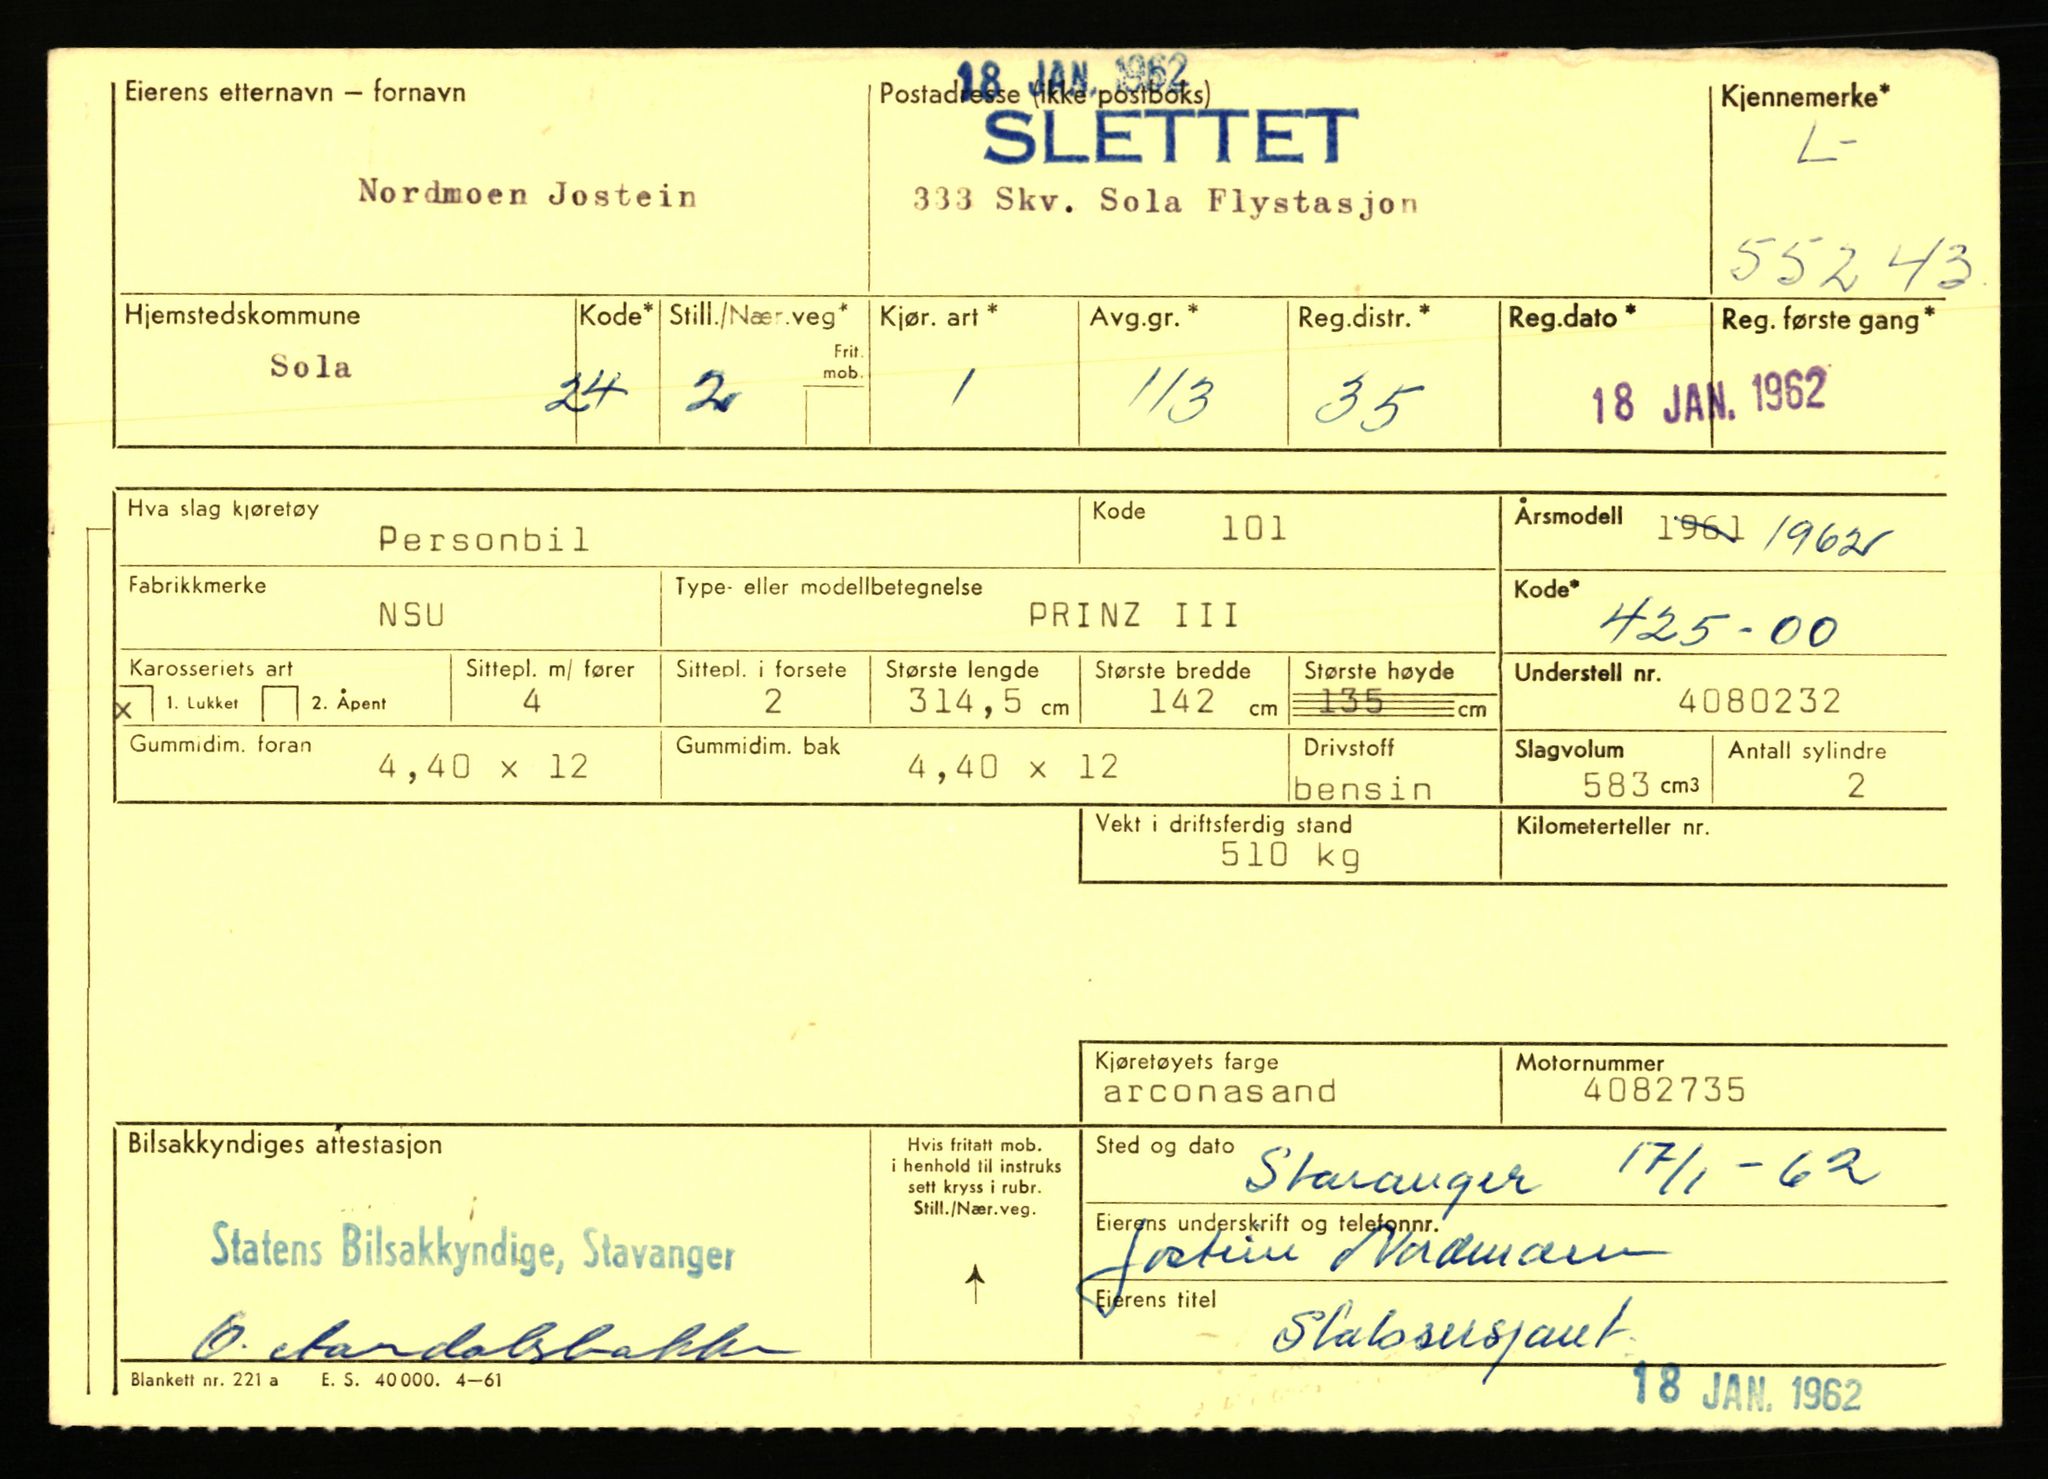 18 JAN. 1962
Eierens etternavn – fornavn
Postadresse (ikke postboks)
Kjennemerke*
SLETTET
L-
Nordmoen Jostein
333 Skv. Sola Flystasjon
55243
Hjemstedskommune
Kode*
Still./Nær.veg*
Kjør. art *
Avg.gr. *
Reg.distr. *
Reg.dato *
Reg. første gang*
Frit. mob.
Sola
24
2
1
113
35
18 JAN. 1962
Hva slag kjøretøy
Personbil
Kode
101
Årsmodell
1961 1962
Fabrikkmerke
NSU
Type- eller modellbetegnelse
PRINZ III
Kode*
425-00
Karosseriets art
x 1. Lukket 2. Åpent
Sittepl. m/ fører
4
Sittepl. i forsete
2
Største lengde
314,5 cm
Største bredde
142 cm
Største høyde
135 cm
Understell nr.
4080232
Gummidim. foran
4,40 x 12
Gummidim. bak
4,40 x 12
Drivstoff
bensin
Slagvolum
583 cm3
Antall sylindre
2
Vekt i driftsferdig stand
510 kg
Kilometerteller nr.
Kjøretøyets farge
arconasand
Motornummer
4082735
Bilsakkyndiges attestasjon
Hvis fritatt mob.
i henhold til instruks
sett kryss i rubr.
Still./Nær.veg.
Sted og dato
Stavanger 17/1-62
Statens Bilsakkyndige, Stavanger
Eierens underskrift og telefonnr.
Jostein Nordmoen
Eierens titel
Stabssersjant
18 JAN. 1962
Blankett nr. 221 a E. S. 40 000. 4–61